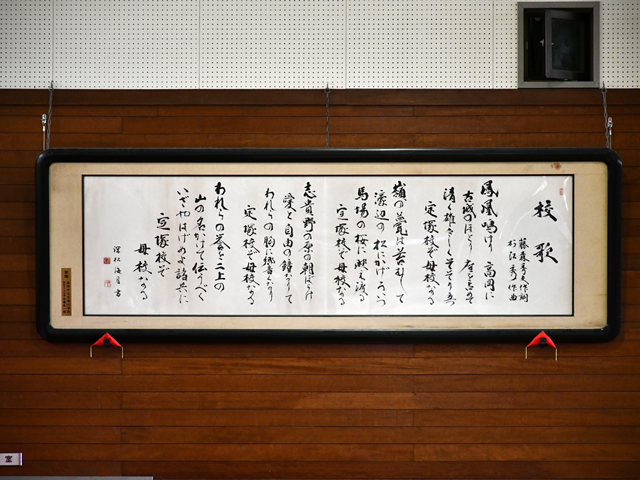 校歌
藤森秀夫作詞
作曲
鳳凰鳴けり高岡に
古城のほとり 居を占めて
清く雄々しくそそり立つ
定塚校ぞ母校なる
嶺の甍は苔むして
濠辺の松にかげうつ
馬場の桜に映え渡る
定塚校ぞ母校なる
志貴野の原の朝ぼらけ
愛と自由の鐘なりて
われらの胸に響くなり
定塚校ぞ母校なる
われらの誉を二上の
山の名かけて伝うべく
いざやはげめよ諸共に
定塚校ぞ
母校なる
書
室